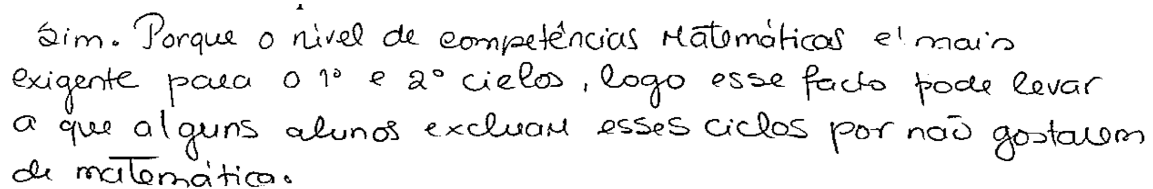 Sim. Porque o nível de competências Matemáticas é mais
exigente para o 1º e 2º ciclos, logo esse facto pode levar
a que alguns alunos excluam esses ciclos por não gostarem
de matemática.